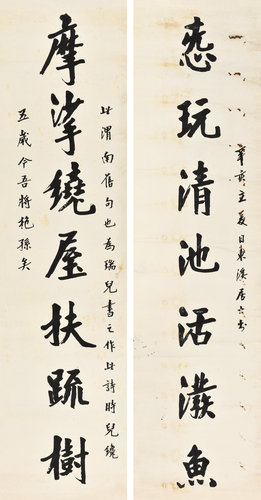 辛亥立夏日東溪居士書
恣玩清池活潑魚
此渭南舊句也為瑞兒書之作此詩時兒纔
摩挲繞屋扶疏樹
五歲今吾將抱孫矣